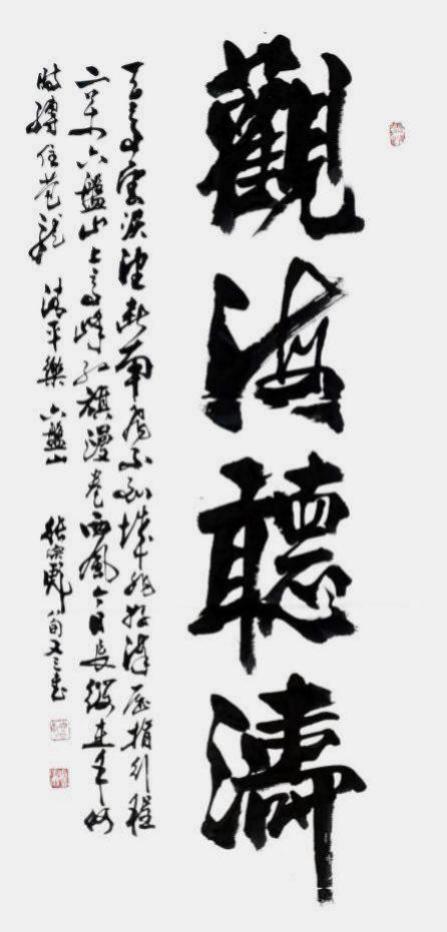 觀海聽濤
天高雲淡望断南飛雁不到長城非好漢屈指行程
二萬六盤山上高峰紅旗漫卷西風今日長纓在手何
時縛住蒼龍 清平樂 六盤山